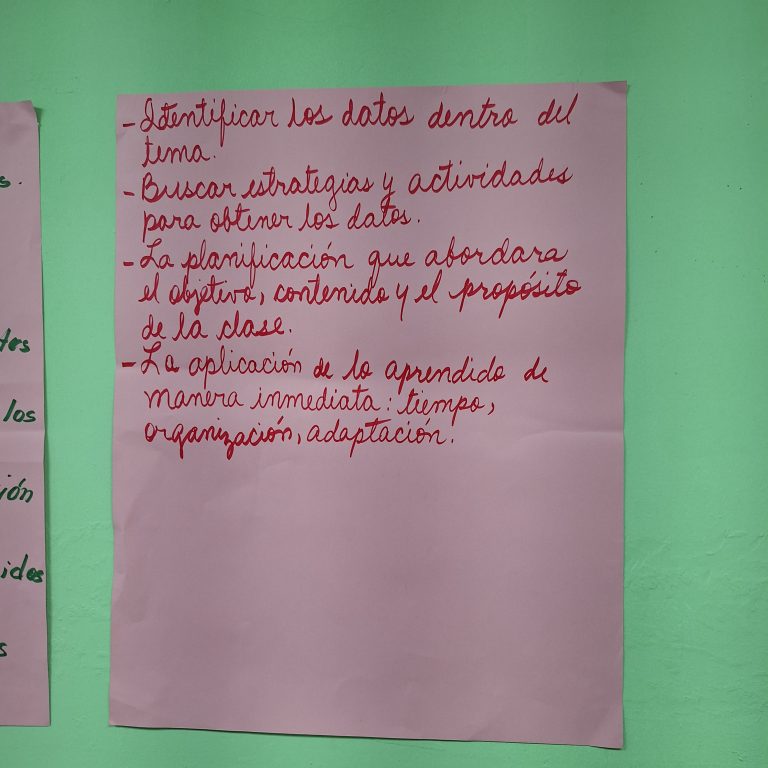 s.
tes
los
ión
ides
s
- Identificar los datos dentro del
tema.
- Buscar estrategias y actividades
para obtener los datos.
- La planificación que abordara
el objetivo, contenido y el propósito
de la clase.
- La aplicación de lo aprendido de
manera inmediata: tiempo,
organización, adaptación.